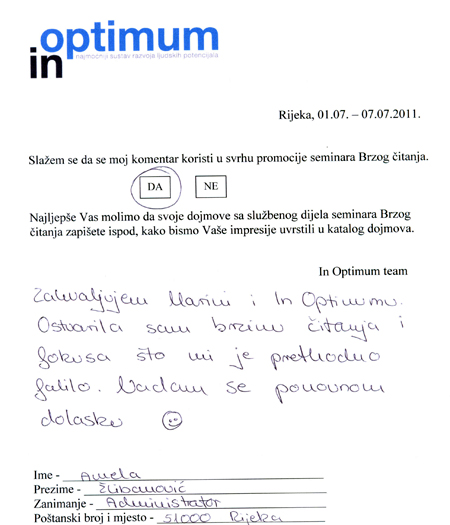 optimum
najmoćniji sustav razvoja ljudskih potencijala
in
Rijeka, 01.07. – 07.07.2011.
Slažem se da se moj komentar koristi u svrhu promocije seminara Brzog čitanja.
DA NE
Najljepše Vas molimo da svoje dojmove sa službenog dijela seminara Brzog
čitanja zapišete ispod, kako bismo Vaše impresije uvrstili u katalog dojmova.
In Optimum team
Zahvaljujem Marini i In Optimumu.
Ostvarila sam brzinu čitanja i
fokusa što mi je prethodno
falilo. Nadam se ponovnom
dolasku ☺
Ime - Amela
Prezime - Žlibanović
Zanimanje - Administrator
Poštanski broj i mjesto - 51000 Rijeka